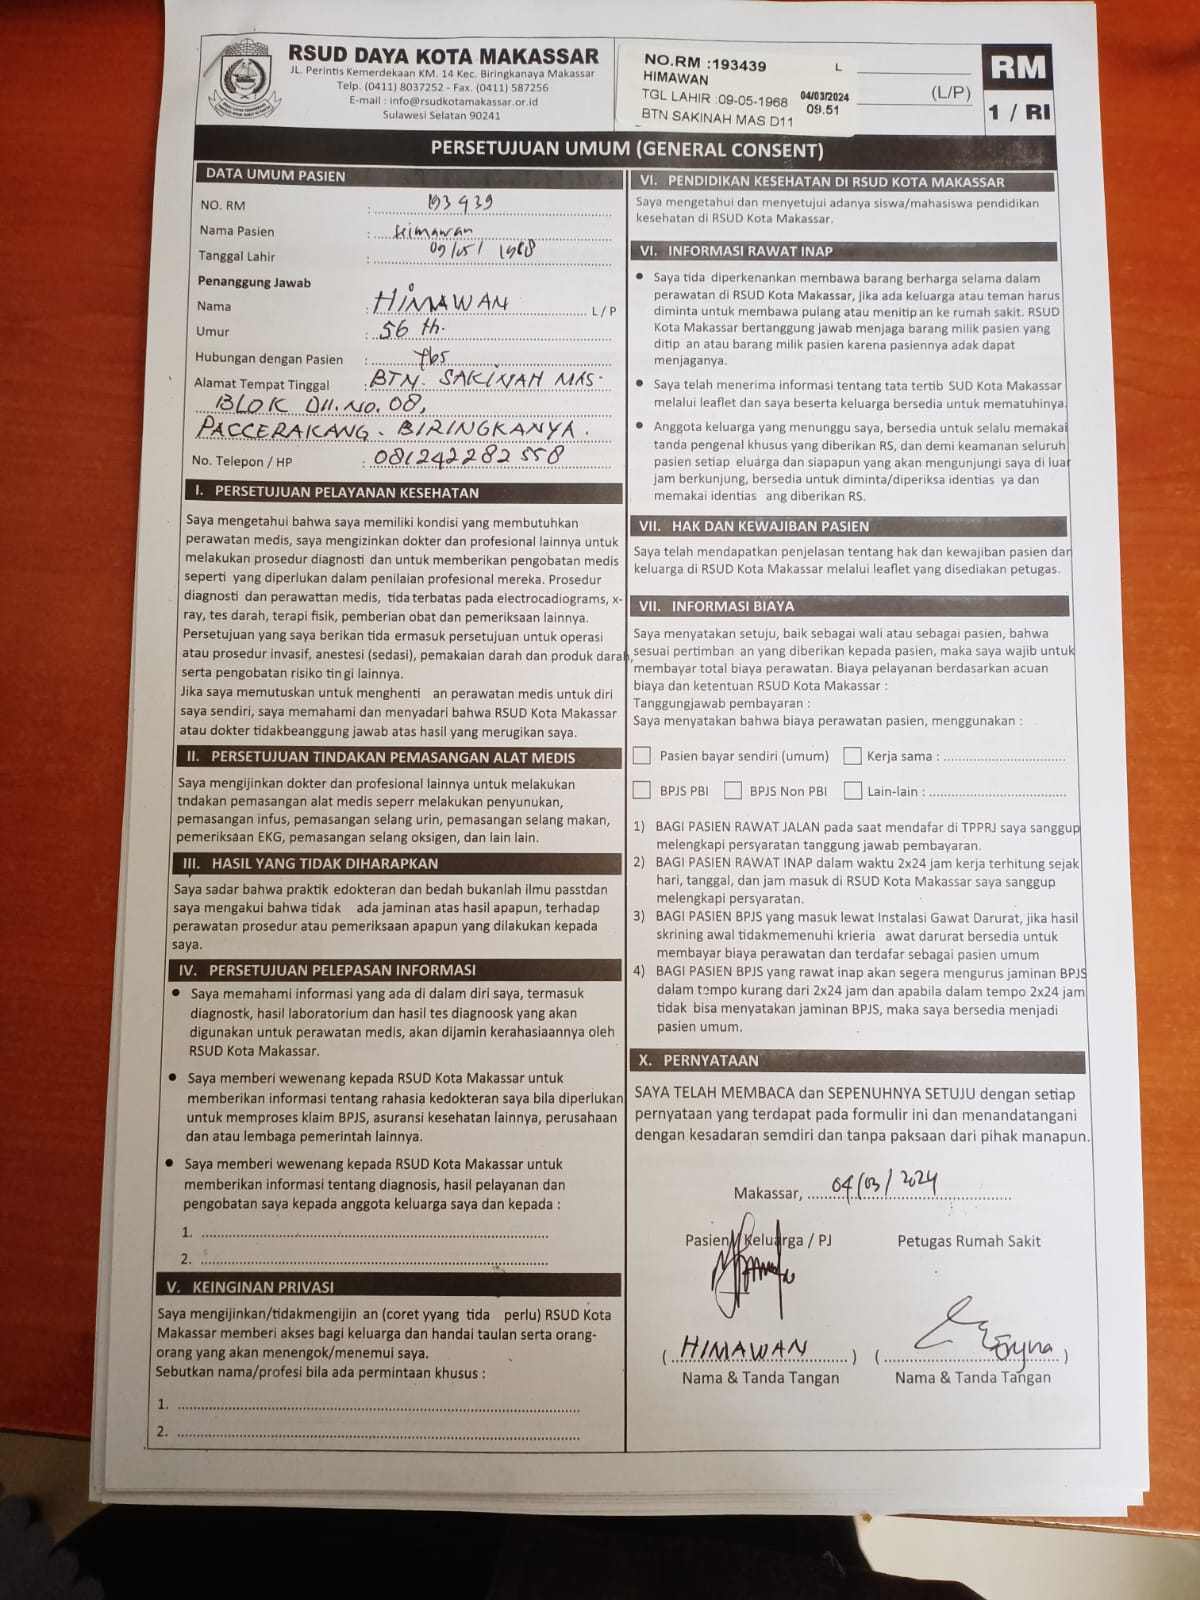 RSUD DAYA KOTA MAKASSAR
JL. Perintis Kemerdekaan KM. 14 Kec. Biringkanaya Makassar
Telp. (0411) 8037252 - Fax. (0411) 587256
E-mail : info@rsudkotamakassar.or.id
Sulawesi Selatan 90241
NO.RM :193439 L
HIMAWAN
TGL LAHIR :09-05-1968 04/03/2024
09.51
BTN SAKINAH MAS D11
(L/P)
RM
1 / RI
PERSETUJUAN UMUM (GENERAL CONSENT)
DATA UMUM PASIEN
NO. RM : 193439
Nama Pasien : Himawan
Tanggal Lahir : 09/05/1968
Penanggung Jawab
Nama : HIMAWAN L / P
Umur : 56 th.
Hubungan dengan Pasien : ybs
Alamat Tempat Tinggal : BTN. SAKINAH MAS-
BLOK D11.No.08,
PACCERAKANG - BIRINGKANYA.
No. Telepon / HP : 081242282558
I. PERSETUJUAN PELAYANAN KESEHATAN
Saya mengetahui bahwa saya memiliki kondisi yang membutuhkan
perawatan medis, saya mengizinkan dokter dan profesional lainnya untuk
melakukan prosedur diagnosti dan untuk memberikan pengobatan medis
seperti yang diperlukan dalam penilaian profesional mereka. Prosedur
diagnosti dan perawattan medis, tida terbatas pada electrocadiograms, x-
ray, tes darah, terapi fisik, pemberian obat dan pemeriksaan lainnya.
Persetujuan yang saya berikan tida ermasuk persetujuan untuk operasi
atau prosedur invasif, anestesi (sedasi), pemakaian darah dan produk darah,
serta pengobatan risiko tin gi lainnya.
Jika saya memutuskan untuk menghenti an perawatan medis untuk diri
saya sendiri, saya memahami dan menyadari bahwa RSUD Kota Makassar
atau dokter tidakbeanggung jawab atas hasil yang merugikan saya.
II. PERSETUJUAN TINDAKAN PEMASANGAN ALAT MEDIS
Saya mengijinkan dokter dan profesional lainnya untuk melakukan
tndakan pemasangan alat medis seperr melakukan penyunukan,
pemasangan infus, pemasangan selang urin, pemasangan selang makan,
pemeriksaan EKG, pemasangan selang oksigen, dan lain lain.
III. HASIL YANG TIDAK DIHARAPKAN
Saya sadar bahwa praktik edokteran dan bedah bukanlah ilmu passtdan
saya mengakui bahwa tidak ada jaminan atas hasil apapun, terhadap
perawatan prosedur atau pemeriksaan apapun yang dilakukan kepada
saya.
IV. PERSETUJUAN PELEPASAN INFORMASI
• Saya memahami informasi yang ada di dalam diri saya, termasuk
diagnostk, hasil laboratorium dan hasil tes diagnoosk yang akan
digunakan untuk perawatan medis, akan dijamin kerahasiaannya oleh
RSUD Kota Makassar.
• Saya memberi wewenang kepada RSUD Kota Makassar untuk
memberikan informasi tentang rahasia kedokteran saya bila diperlukan
untuk memproses klaim BPJS, asuransi kesehatan lainnya, perusahaan
dan atau lembaga pemerintah lainnya.
• Saya memberi wewenang kepada RSUD Kota Makassar untuk
memberikan informasi tentang diagnosis, hasil pelayanan dan
pengobatan saya kepada anggota keluarga saya dan kepada :
1.
2.
V. KEINGINAN PRIVASI
Saya mengijinkan/tidakmengijin an (coret yyang tida perlu) RSUD Kota
Makassar memberi akses bagi keluarga dan handai taulan serta orang-
orang yang akan menengok/menemui saya.
Sebutkan nama/profesi bila ada permintaan khusus :
1.
2.
VI. PENDIDIKAN KESEHATAN DI RSUD KOTA MAKASSAR
Saya mengetahui dan menyetujui adanya siswa/mahasiswa pendidikan
kesehatan di RSUD Kota Makassar.
VI. INFORMASI RAWAT INAP
• Saya tida diperkenankan membawa barang berharga selama dalam
perawatan di RSUD Kota Makassar, jika ada keluarga atau teman harus
diminta untuk membawa pulang atau menitip an ke rumah sakit. RSUD
Kota Makassar bertanggung jawab menjaga barang milik pasien yang
ditip an atau barang milik pasien karena pasiennya adak dapat
menjaganya.
• Saya telah menerima informasi tentang tata tertib SUD Kota Makassar
melalui leaflet dan saya beserta keluarga bersedia untuk mematuhinya.
• Anggota keluarga yang menunggu saya, bersedia untuk selalu memakai
tanda pengenal khusus yang diberikan RS, dan demi keamanan seluruh
pasien setiap eluarga dan siapapun yang akan mengunjungi saya di luar
jam berkunjung, bersedia untuk diminta/diperiksa identias ya dan
memakai identias ang diberikan RS.
VII. HAK DAN KEWAJIBAN PASIEN
Saya telah mendapatkan penjelasan tentang hak dan kewajiban pasien dan
keluarga di RSUD Kota Makassar melalui leaflet yang disediakan petugas.
VII. INFORMASI BIAYA
Saya menyatakan setuju, baik sebagai wali atau sebagai pasien, bahwa
sesuai pertimban an yang diberikan kepada pasien, maka saya wajib untuk
membayar total biaya perawatan. Biaya pelayanan berdasarkan acuan
biaya dan ketentuan RSUD Kota Makassar :
Tanggungjawab pembayaran :
Saya menyatakan bahwa biaya perawatan pasien, menggunakan :
Pasien bayar sendiri (umum) Kerja sama :
BPJS PBI BPJS Non PBI Lain-lain :
1) BAGI PASIEN RAWAT JALAN pada saat mendafar di TPPRJ saya sanggup
melengkapi persyaratan tanggung jawab pembayaran.
2) BAGI PASIEN RAWAT INAP dalam waktu 2x24 jam kerja terhitung sejak
hari, tanggal, dan jam masuk di RSUD Kota Makassar saya sanggup
melengkapi persyaratan.
3) BAGI PASIEN BPJS yang masuk lewat Instalasi Gawat Darurat, jika hasil
skrining awal tidakmemenuhi krieria awat darurat bersedia untuk
membayar biaya perawatan dan terdafar sebagai pasien umum
4) BAGI PASIEN BPJS yang rawat inap akan segera mengurus jaminan BPJS
dalam tempo kurang dari 2x24 jam dan apabila dalam tempo 2x24 jam
tidak bisa menyatakan jaminan BPJS, maka saya bersedia menjadi
pasien umum.
X. PERNYATAAN
SAYA TELAH MEMBACA dan SEPENUHNYA SETUJU dengan setiap
pernyataan yang terdapat pada formulir ini dan menandatangani
dengan kesadaran semdiri dan tanpa paksaan dari pihak manapun.
Makassar, 04/03/2024
Pasien/Keluarga / PJ Petugas Rumah Sakit
( HIMAWAN ) ( )
Nama & Tanda Tangan Nama & Tanda Tangan